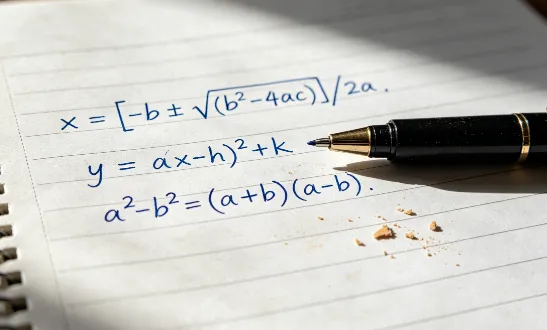 x = [-b ± √(b²-4ac)]/2a.
y = ax-h)²+k
a²-b² = (a+b)(a-b).